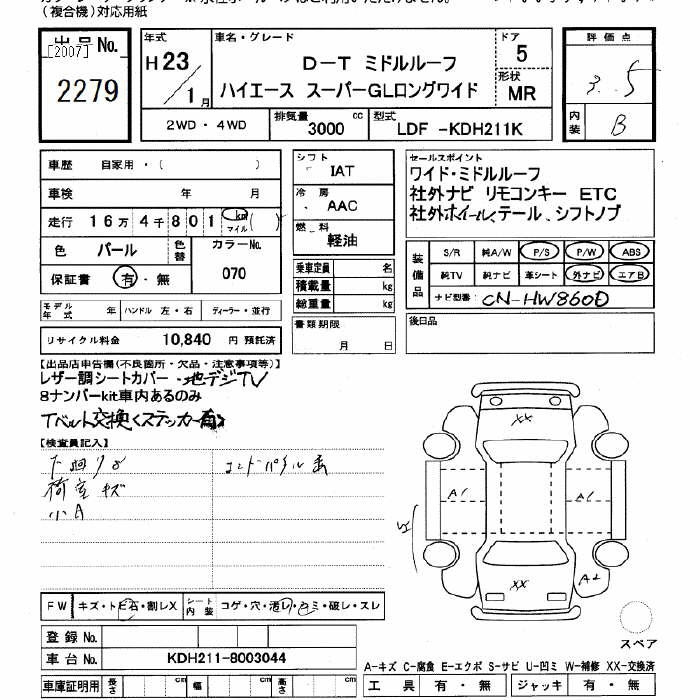 （複合機）対応用紙
出品No.
[2007]
2279
年式
H 23 / 1 月
車名・グレード
D-T ミドルルーフ
ハイエース スーパーGLロングワイド
ドア
5
形状
MR
評価点
3.5
内装
B
2WD・4WD
排気量
3000 cc
型式
LDF -KDH211K
車歴 自家用・( )
車検 年 月
走行 16万4千801 km マイル ( )
色 パール
色替
カラーNo.
070
保証書 有・無
モデル年式 年 ハンドル 左・右 ディーラー・並行
リサイクル料金 10,840 円 預託済
シフト
IAT
冷房
AAC
燃料
軽油
乗車定員 名
積載量 kg
総重量 kg
書類期限
月 日
セールスポイント
ワイド・ミドルルーフ
社外ナビ リモコンキー ETC
社外ホイール、テール、シフトノブ
装備品
S/R 純A/W P/S P/W ABS
純TV 純ナビ 革シート 外ナビ エアB
ナビ型番 CN-HW860D
後日品
【出品店申告欄(不良箇所・欠品・注意事項等)】
レザー調シートカバー・地デジTV
8ナンバーkit車内あるのみ
Tベルト交換<ステッカー有>
【検査員記入】
下廻りサ
荷室キズ
小A
XX
A1
A1
XX
A2
FW キズ・トビ石・割レX
シート内装 コゲ・穴・汚レ・シミ・破レ・スレ
登録No.
車台No. KDH211-8003044
車庫証明用 長さ cm 幅 cm 高さ cm
スペア
A-キズ C-腐食 E-エクボ S-サビ U-凹ミ W-補修 XX-交換済
工具 有・無 ジャッキ 有・無